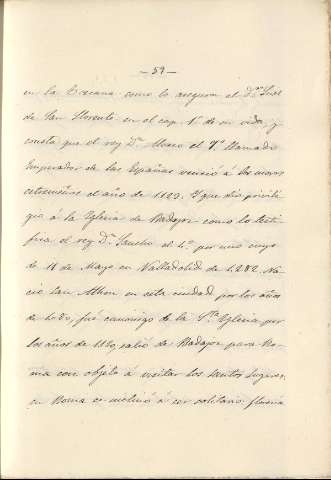 — 59 —
en la Toscana como lo asegura el Dr. Luis
de San Llorente en el cap. 1º de su vida, y
consta que el rey Dn. Alonso el 7º llamado
Emperador de las Españas venció a los moros
estremeños el año de 1129. Y que dio privile
gio á la Iglesia de Badajoz como lo testi
fica el rey Dn. Sancho el 4º por uno suyo
de 18 de Mayo en Valladolid de 1282. Na
ció San Athon en esta ciudad por los años
de 1080, fué canonigo de la Sta. Iglesia por
los años de 1120, salió de Badajoz para Ro
ma con objeto á visitar los santos lugares,
en Roma se inclinó á ser solitario, florecía